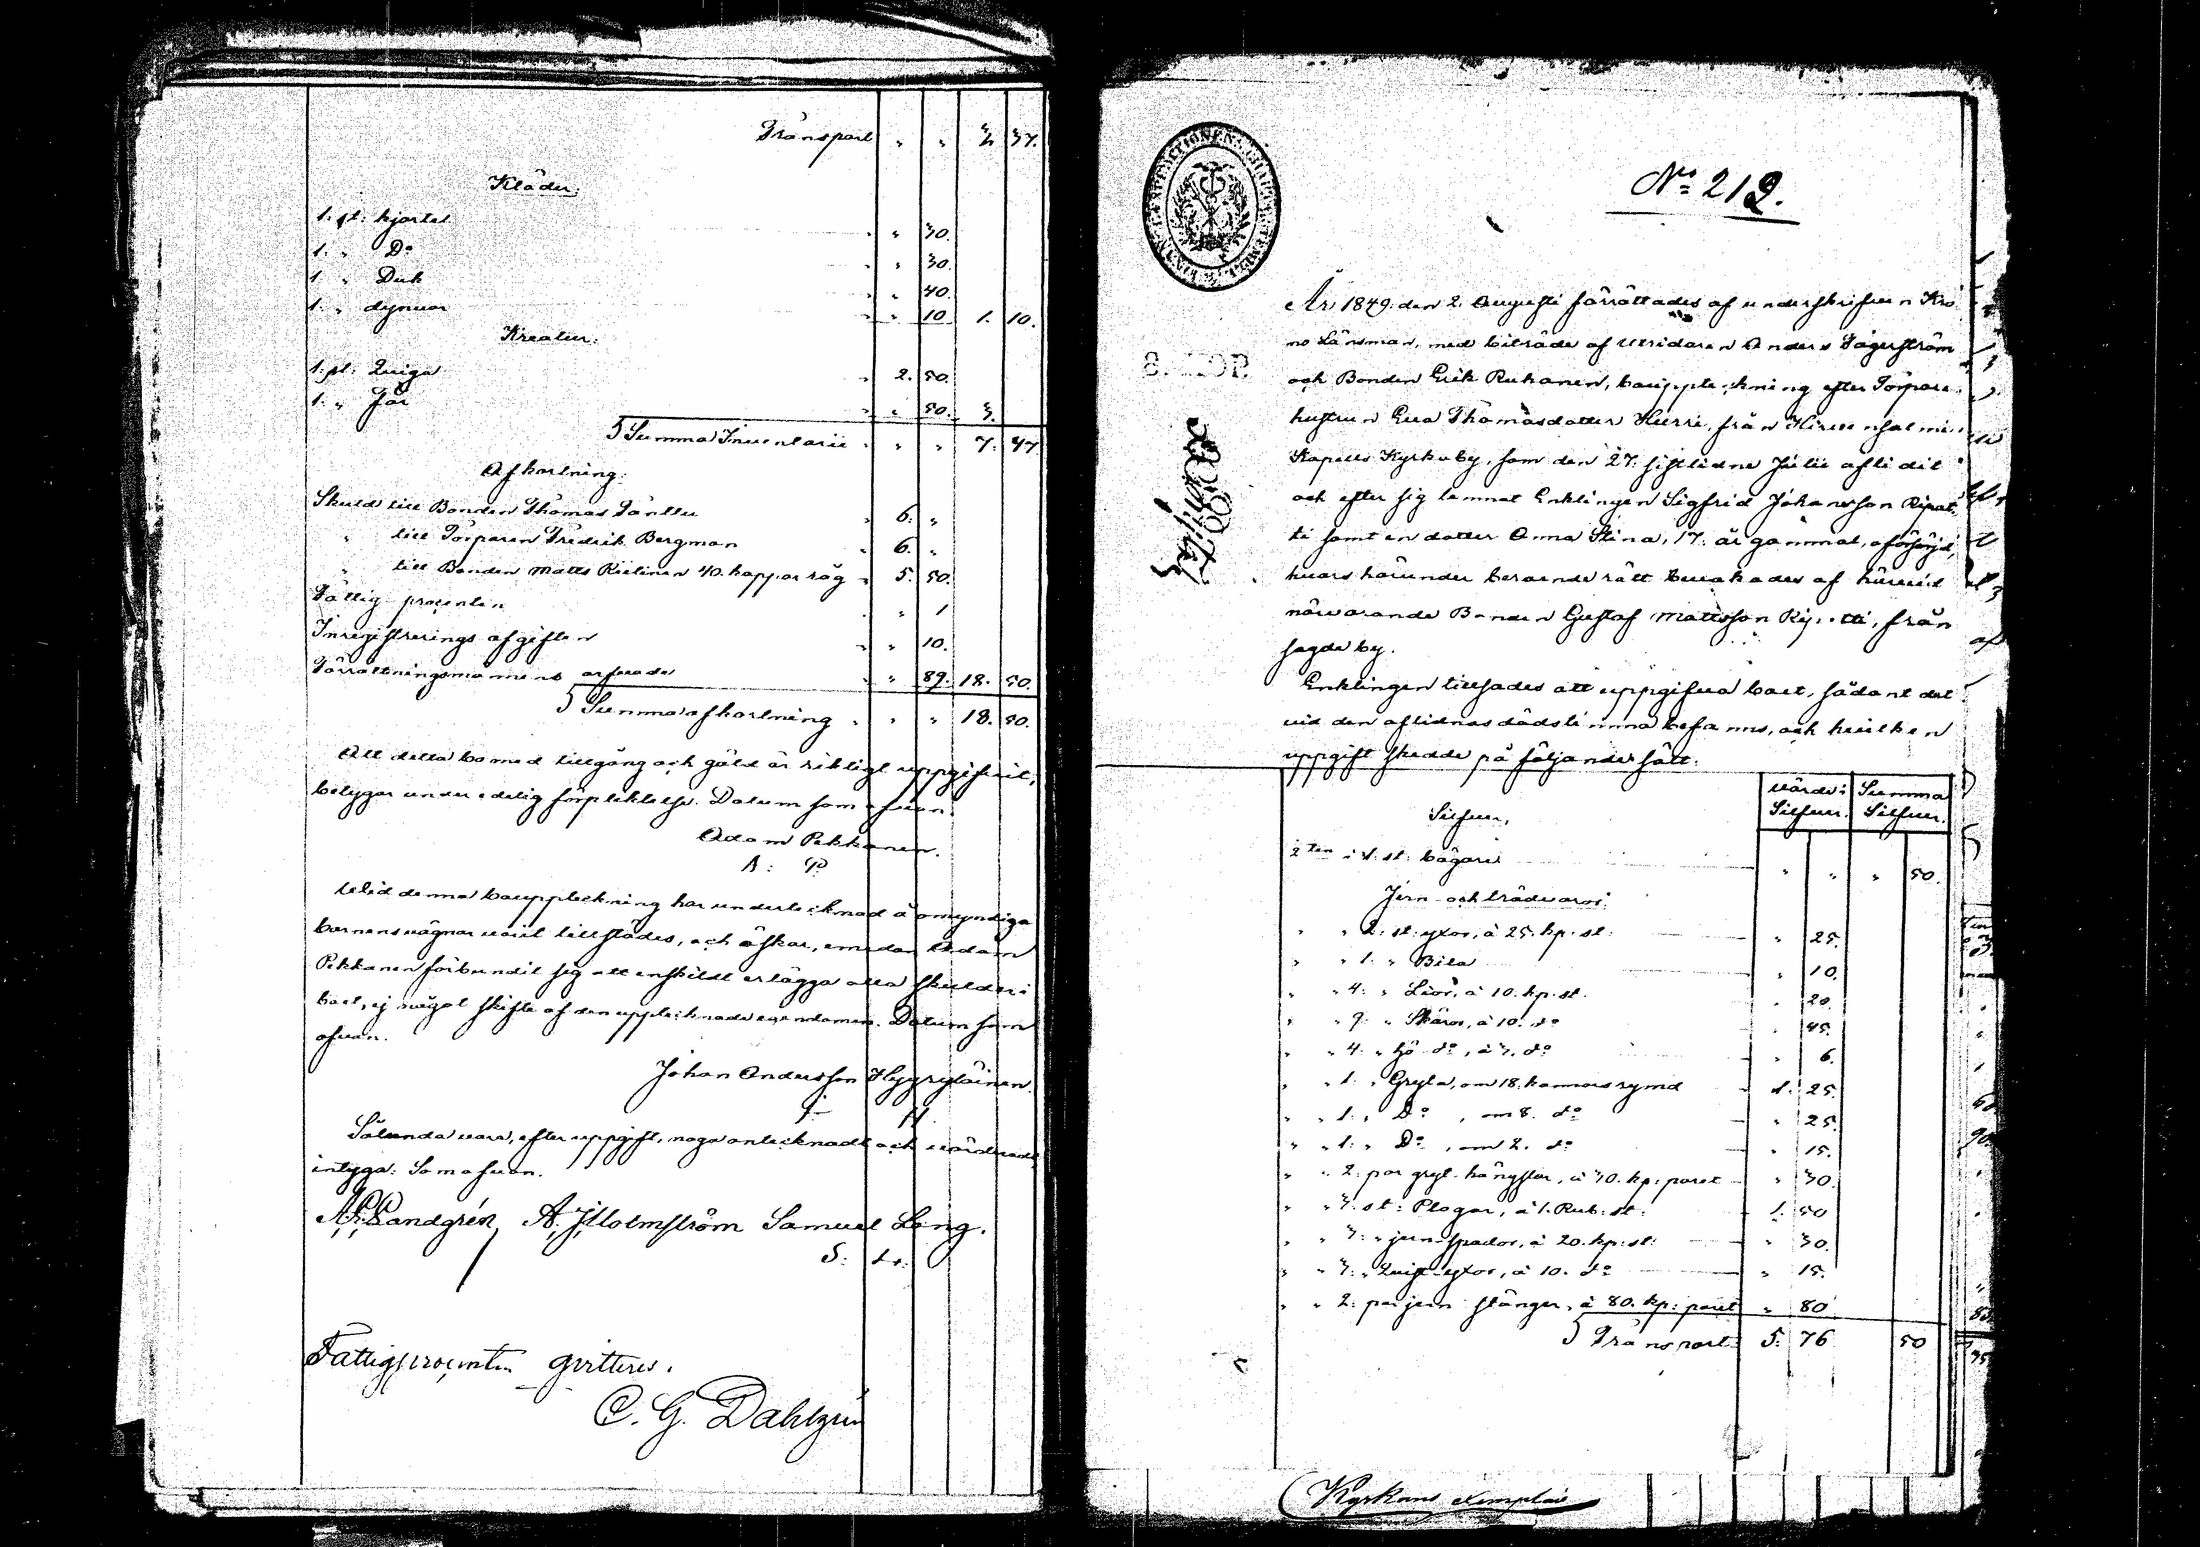 Transport " " 3 37.
Kläder:
1. st: kjortel " " 30.
1. " Do " " 30.
1 " Duk " " 40.
1. " dynvar " " 10 1. 10.
Kreatur:
1. st: Quiga " 2. 50.
1. " Får " " 50. 3.
Summa Inventarii " " " 7. 47
Afkortning:
Skuld till Bonden Thomas " 6. "
" till Torparen Fredrik Bergman " 6. "
" till Bonden Matts 40. kappar råg " 5. 50.
Fattig procenten " " 1
Inregistrerings afgiften " " 10.
Förrättningsmännens arfvode " " 89. 18. 50.
Summa afkortning " " " 18. 50.
Att detta bo med tillgång och gäld är riktigt uppgifvit,
betygar under edelig förpliktelse. Datum som ofvan.
Adam Pekkanen.
A: P.
Wid denna bouppteckning har undertecknad å omyndiga
barnens vägnar varit tillstädes, och äskar, emedan Adam
Pekkanen förbundit sig att enskildt erlägga alla skulder i
boet, ej något skifte af den upptecknade egendomen. Datum som
ofvan.
Johan Andersson Hyyryläinen.
I H
Sålunda vara, efter uppgift, noga antecknadt och värderadt
intyga: Som ofvan.
Landgrén A. J. Holmström Samuel Long.
S: L:
Fattigprocenten qvitteras.
C. G. Dahlgrén
No 212.
År 1849. den 2. Augusti förrättades af underskrifven Kro
no Länsman, med biträde af Uridaren Anders Fagerström
och Bonden Erik Ruhanen, bouppteckning efter Torpare
hustrun Eva Thomasdotter Hurri, från Hirvensalmi
Kapells Kyrkoby, som den 27. sistledne Julii aflidit
och efter sig lemnat Enklingen Sigfrid Johansson Ripat
ti samt en dotter Anna Stina, 17. år gammal, oförsörjd,
hvars härunder beroende rätt bevakades af härvid
närvarande Bonden Gustaf Mattsson Ripatti, från
sagde by.
Enklingen tillsades att uppgifva boet, sådant det
vid den aflidnas dödstimma befanns, och hvilken
uppgift skedde på följande sätt:
Värde i Silfver. Summa Silfver.
Silfver,
1. st: bägare " " " 50.
Jern och trädvaror:
" " 2: st: yxor, à 25. kp: st: " 25.
" " 1. " Bila " 10.
" " 4: " Liar, à 10. kp: st. " 20.
" " 9. " Skäror, à 10. do " 45.
" " 4. " hö do, à 3. do " 6.
" " 1. " Gryta, om 18. kannors rymd 1. 25.
" " 1. " Do , om 8. do " 25.
" " 1. " Do , om 2. do " 15.
" " 2: par gryt hängslor, à 30. kp: paret " 30.
" " 3. st: Plogar, à 1. Rub: st: 1. 50
" " 3: " jern spador, à 20. kp: st: " 30.
" " 3: " Quist yxor, à 10. do " 15.
" " 2: par jern stänger, à 80. kp: paret " 80
Transport 5. 76 50
Kyrkans exemplar